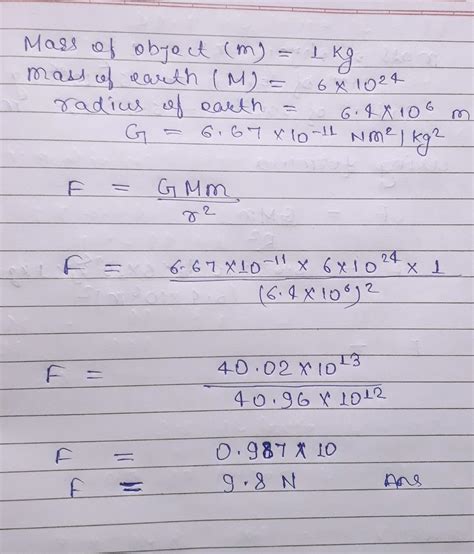 Mass of object (m) = 1 Kg
Mass of earth (M) = 6 × 10²⁴
radius of earth = 6.4 × 10⁶ m
G = 6.67 × 10⁻¹¹ Nm² / Kg²
F = GMm / r²
F = 6.67 × 10⁻¹¹ × 6 × 10²⁴ × 1 / (6.4 × 10⁶)²
F = 40.02 × 10¹³ / 40.96 × 10¹²
F = 0.987 × 10
F = 9.8 N Ans